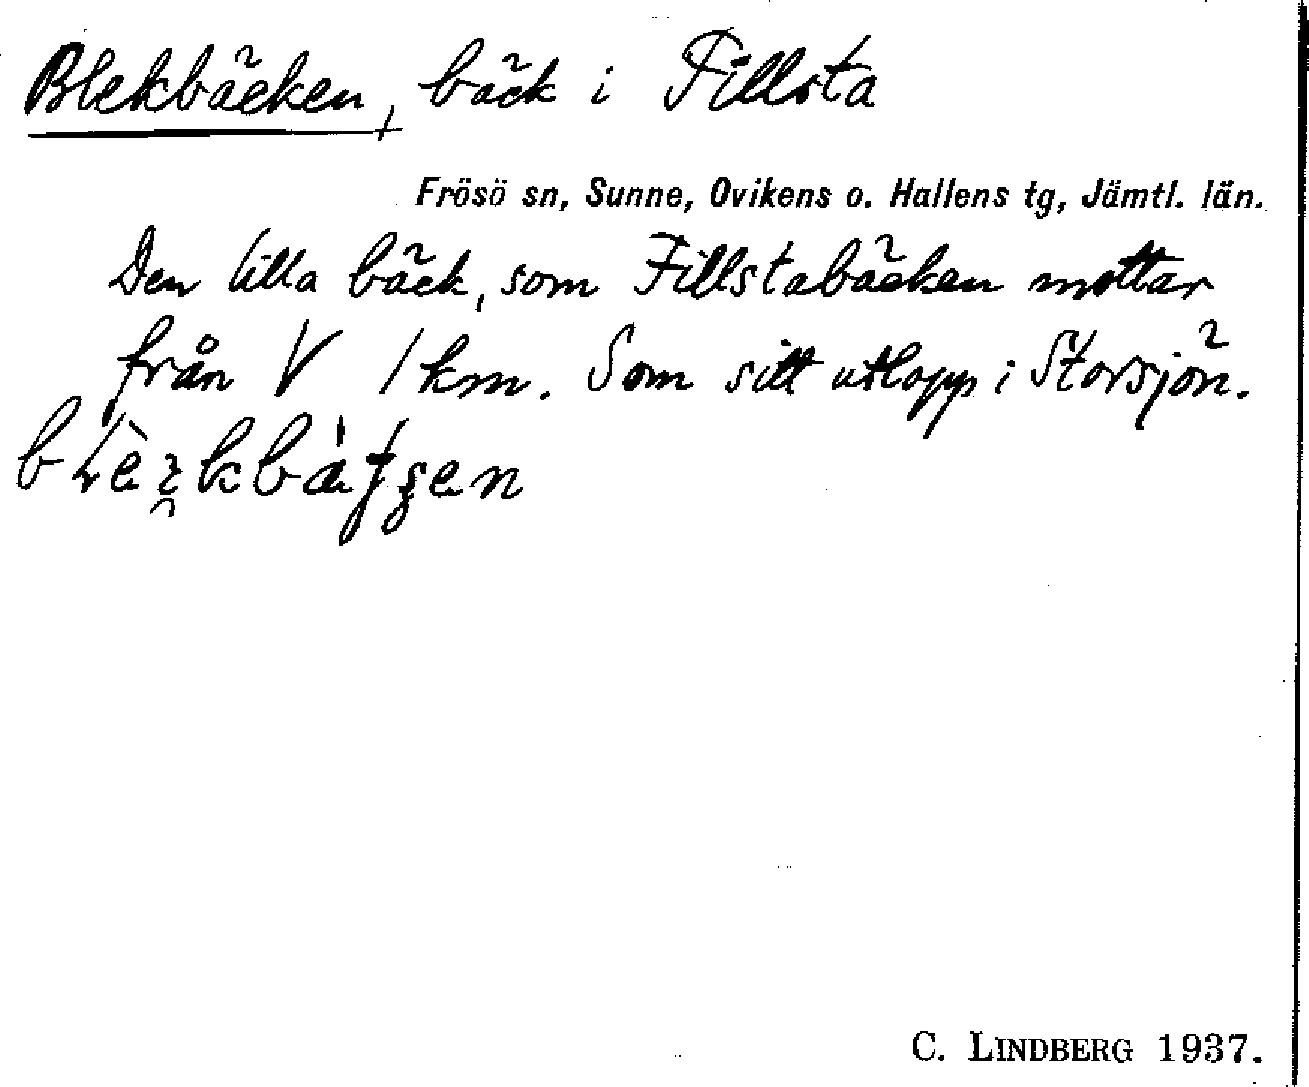 Blekbäcken, bäck i Fillsta
Frösö sn, Sunne, Ovikens o. Hallens tg, Jämtl. län.
Den lilla bäck, som Fillstabäcken mottar
från V 1 km. Som sitt utlopp i Storsjön.
C. LINDBERG 1937.